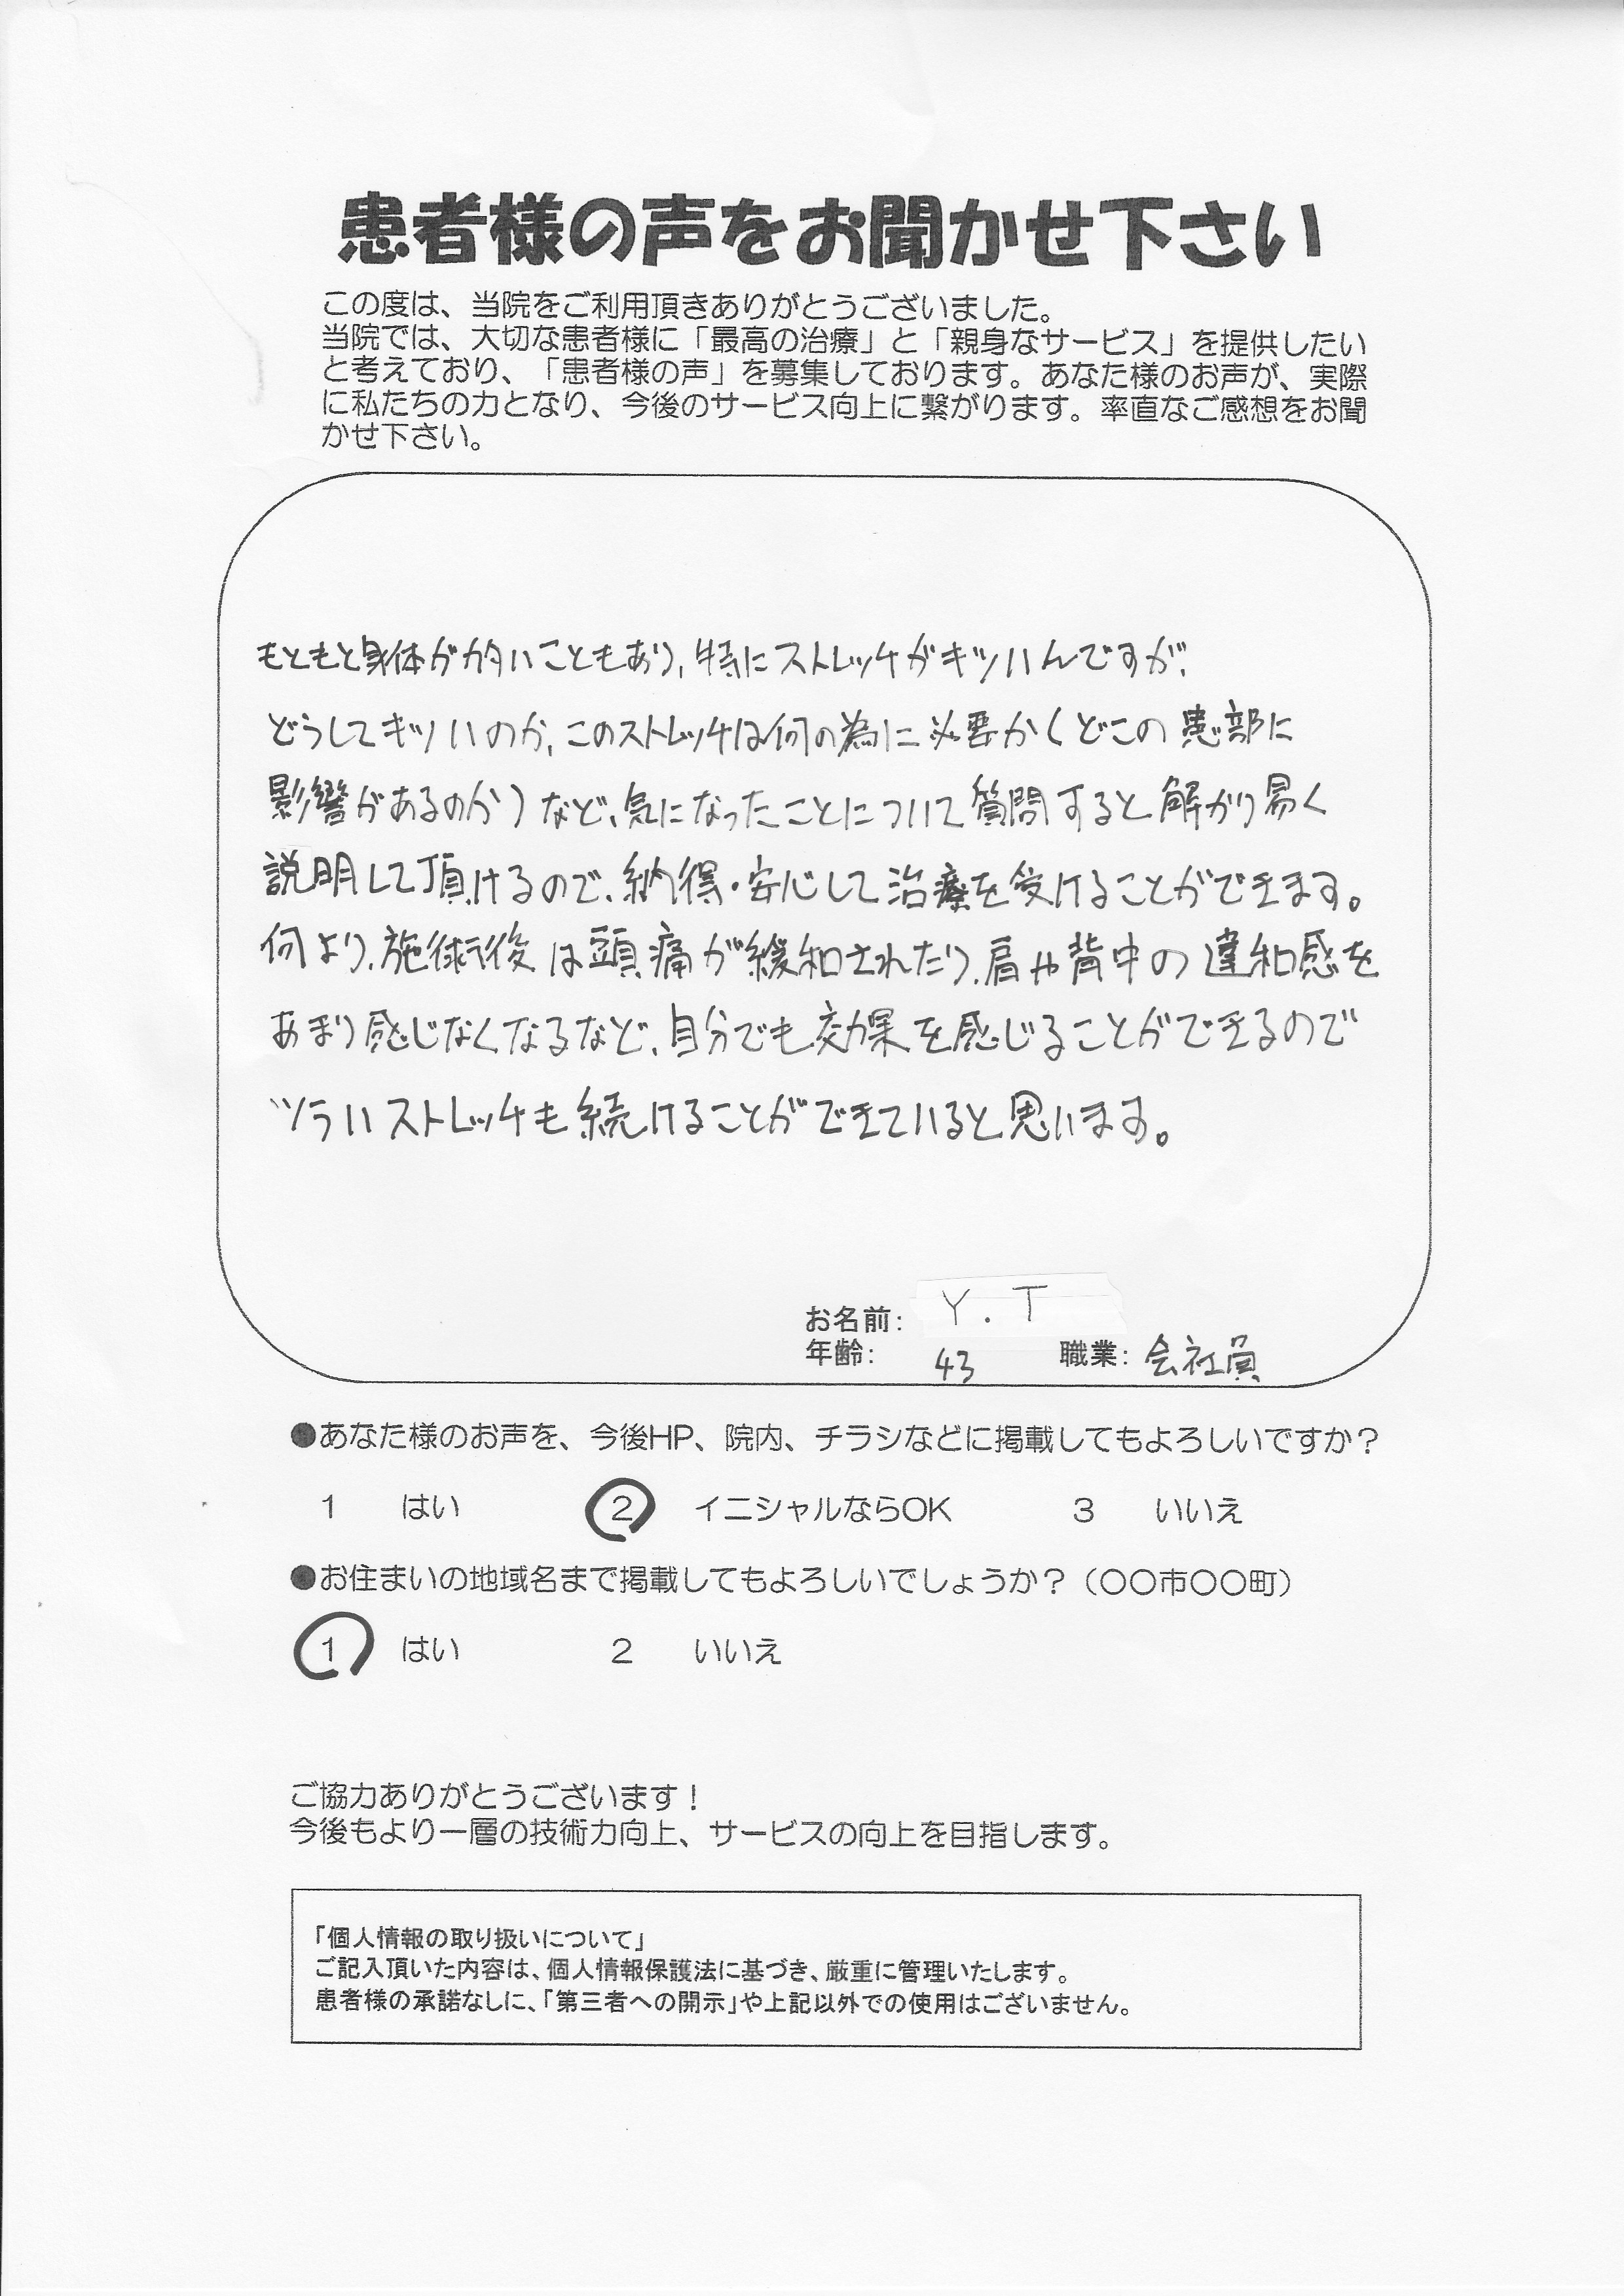 患者様の声をお聞かせ下さい
この度は、当院をご利用頂きありがとうございました。
当院では、大切な患者様に「最高の治療」と「親身なサービス」を提供したい
と考えており、「患者様の声」を募集しております。あなた様のお声が、実際
に私たちの力となり、今後のサービス向上に繋がります。率直なご感想をお聞
かせ下さい。
もともと身体がカタいこともあり、特にストレッチがキツいんですが、
どうしてキツいのか、このストレッチは何の為に必要か（どこの患部に
影響があるのか）など、気になったことについて質問すると解かり易く
説明して頂けるので、納得・安心して治療を受けることができます。
何より、施術後は頭痛が緩和されたり、肩や背中の違和感を
あまり感じなくなるなど、自分でも効果を感じることができるので
ツラいストレッチも続けることができていると思います。
お名前： Y.T
年齢： 43 職業： 会社員
●あなた様のお声を、今後HP、院内、チラシなどに掲載してもよろしいですか？
1 はい 2 イニシャルならOK 3 いいえ
●お住まいの地域名まで掲載してもよろしいでしょうか？（〇〇市〇〇町）
1 はい 2 いいえ
ご協力ありがとうございます！
今後もより一層の技術力向上、サービスの向上を目指します。
「個人情報の取り扱いについて」
ご記入頂いた内容は、個人情報保護法に基づき、厳重に管理いたします。
患者様の承諾なしに、「第三者への開示」や上記以外での使用はございません。